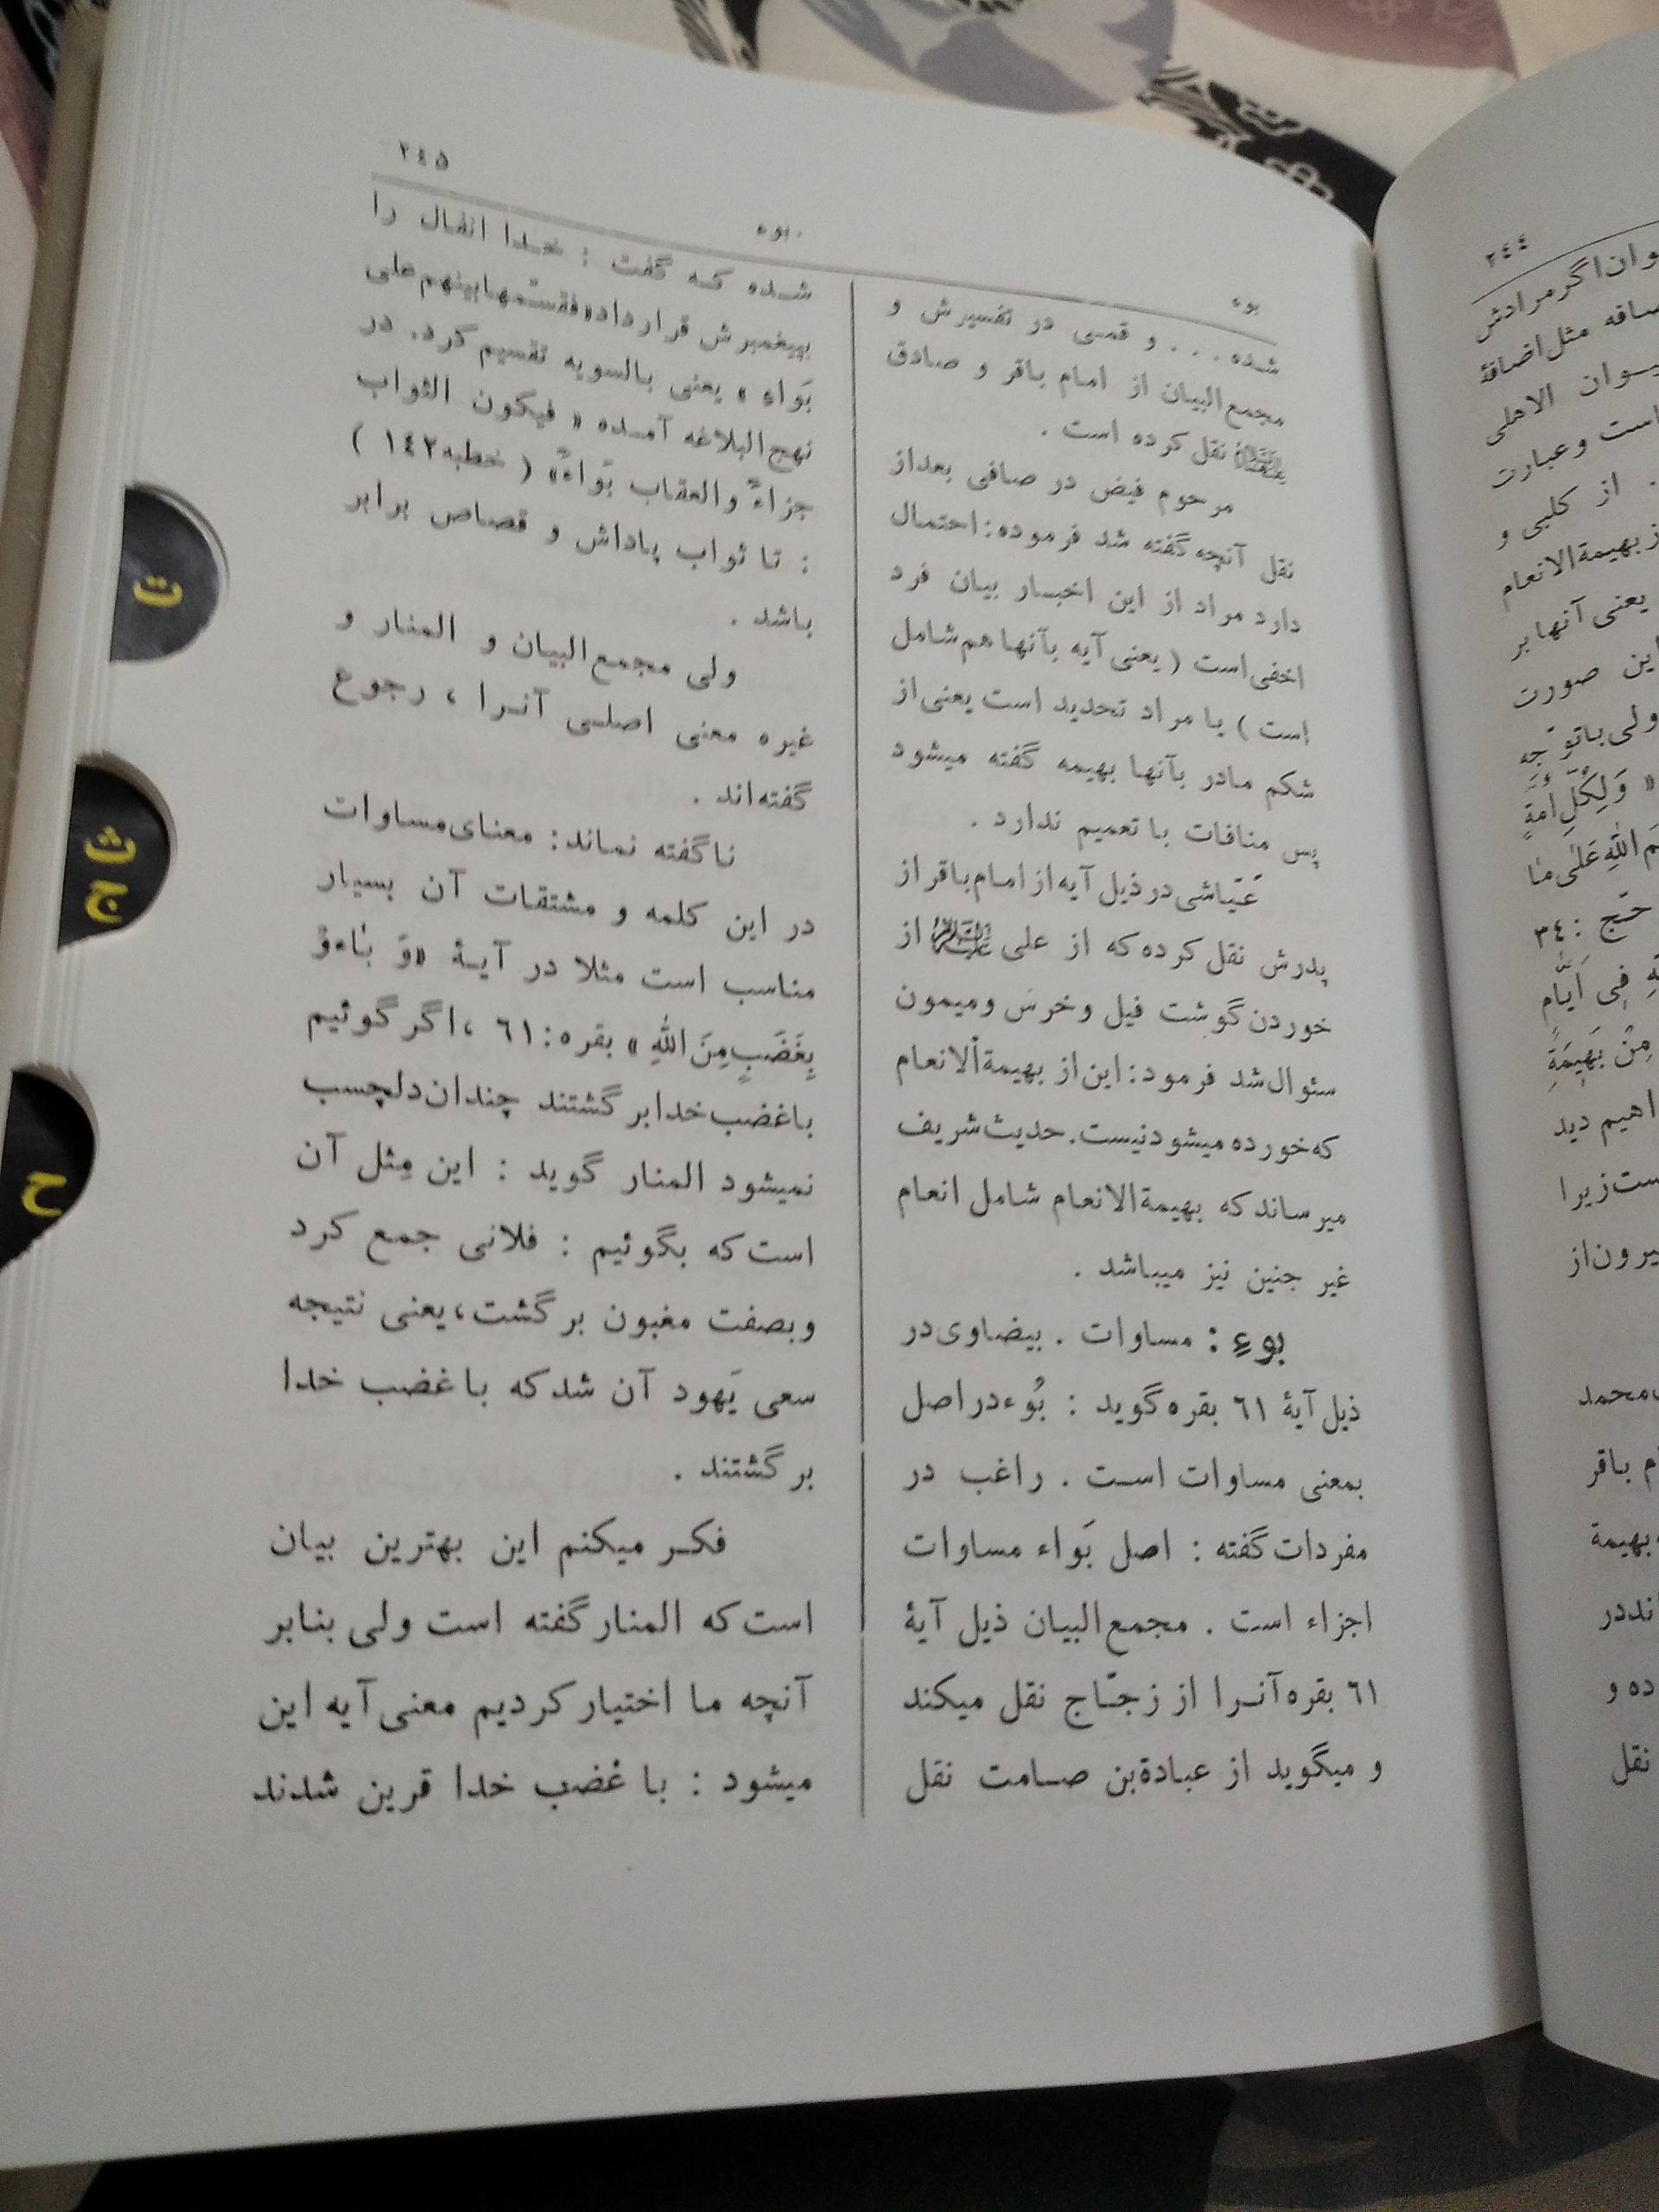 بوء
بوء
٢٤٥
شده . . . و قمی در تفسیرش و
مجمع‌البیان از امام باقر و صادق
نقل کرده است .
مرحوم فیض در صافی بعداز
نقل آنچه گفته شد فرموده: احتمال
دارد مراد از این اخبـار بیان فرد
اخفی است ( یعنی آیه بآنها هم شامل
است ) یا مراد تحدید است یعنی از
شکم مادر بآنها بهیمه گفته میشود
پس منافات با تعمیم ندارد .
عیّاشی در ذیل آیه از امام باقر از
پدرش نقل کرده که از علی علیه‌السلام از
خوردن گوشت فیل و خرس و میمون
سئوال شد فرمود: این از بهیمة الانعام
که خورده میشود نیست. حدیث شریف
میرساند که بهیمة الانعام شامل انعام
غیر جنین نیز میباشد .
بوءِ : مساوات . بیضاوی در
ذیل آیۀ ٦١ بقره گوید : بُوء در اصل
بمعنی مساوات اسـت . راغب در
مفردات گفته : اصل بَواء مساوات
اجزاء است . مجمع‌البیان ذیل آیۀ
٦١ بقره آنـرا از زجّـاج نقل میکند
و میگوید از عبادة بن صـامت نقل
شـده کـه گفت : خـدا انفال را
بپیغمبرش قرار داد «فقسّمها بینهم علی
بَواءِ » یعنی بالسویه تقسیم کرد. در
نهج‌البلاغه آمـده « فیکون الثواب
جزاءً والعقاب بَواءً» ( خطبه ١٤٢ )
: تا ثواب پاداش و قصاص برابر
باشد .
ولی مجمع‌البیان و المنار و
غیره معنی اصلـی آنـرا ، رجوع
گفته‌اند .
ناگفته نماند: معنای مساوات
در این کلمه و مشتقات آن بسیار
مناسب است مثلا در آیـۀ «وَ بٰاءوُ
بِغَضَبٍ مِنَ اللهِ » بقره: ٦١ ، اگر گوئیم
با غضب خدا برگشتند چندان دلچسب
نمیشود المنار گوید : این مِثل آن
است که بگوئیم : فلانی جمع کرد
و بصفت مغبون برگشت، یعنی نتیجه
سعی یَهود آن شد که با غضب خدا
برگشتند .
فکـر میکنم این بهترین بیان
است که المنار گفته است ولی بنابر
آنچه ما اختیار کردیم معنی آیه این
میشود : با غضب خدا قرین شدند
ت
ث
ج
ح
٢٤٤
وان اگر مرادش
مثل اضافۀ
وان الاهلی
است و عبارت
. از کلبی و
ز بهیمة الانعام
یعنی آنها بر
این صورت
ولی با توجّه
« وَلِكُلِّ أُمَّةٍ
اللهِ عَلٰى مٰا
حج : ٣٤
فِی أَیّٰامٍ
مِنْ بَهِیمَةِ
اهیم دید
ست زیرا
یرون از
محمد
م باقر
بهیمة
ند در
ده و
نقل